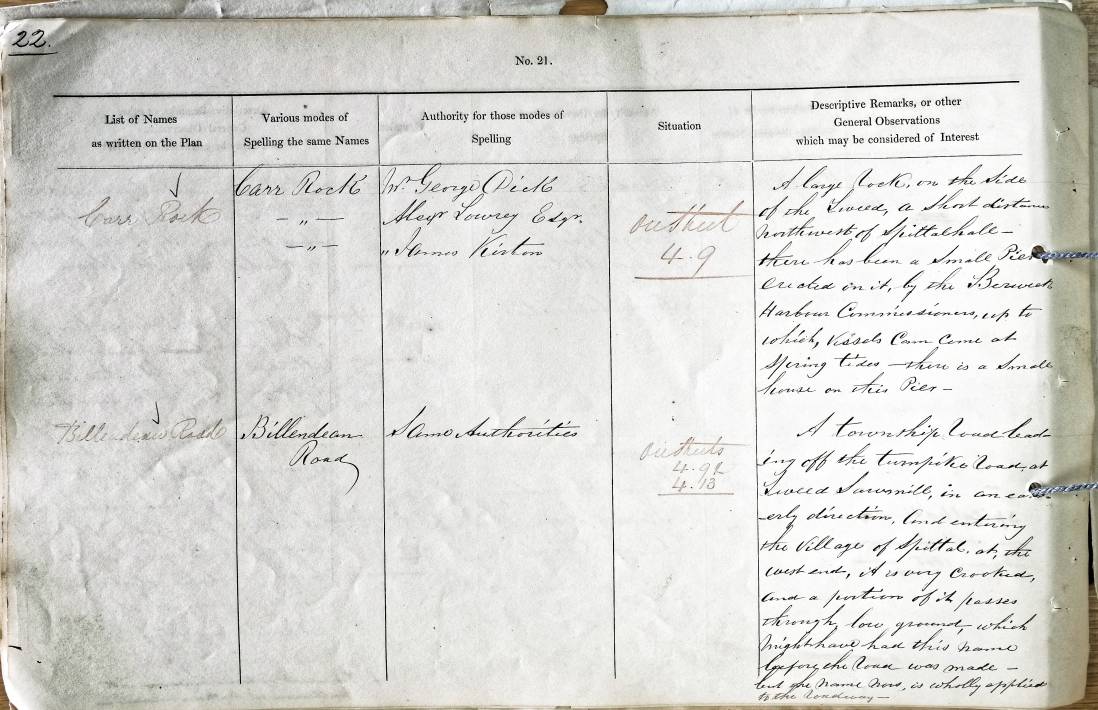 22.
No. 21.
List of Names
as written on the Plan
Various modes of
Spelling the same Names
Authority for those modes of
Spelling
Situation
Descriptive Remarks, or other
General Observations
which may be considered of Interest
Carr Rock
Carr Rock
— „ —
— „ —
Mr. George Dick
Alexr Lowrey Esqr.
„ James Kirton
On Sheet
4.9
A large rock, on the side
of the Tweed, a short distance
Northwest of Spittalhall —
there has been a small Pier
erected on it, by the Berwick
Harbour Commissioners, up to
which, Vessels Can Come at
Spring tides — there is a small
house on this Pier —
Billendean Road
Billendean
Road
Same Authorities
On Sheets
4.9
4.13
A township road lead-
ing off the turnpike road, at
Tweed Sawmill, in an east-
erly direction, and entering
the Village of Spittal, at, the
west end, it is very Crooked,
and a portion of it passes
through, low ground, which
might have had this name
before the road was made —
but the name now, is wholly applied
to the roadway —